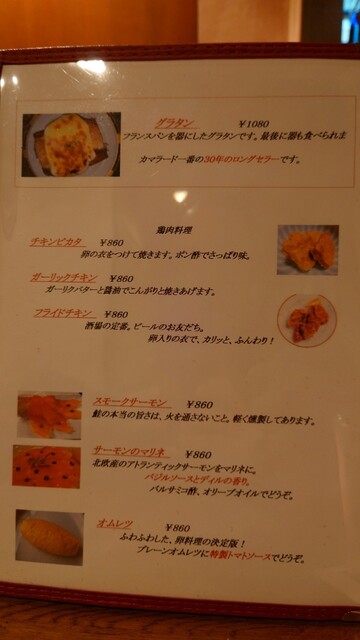 グラタン ¥1080
フランスパンを器にしたグラタンです。最後に器も食べられま
カマラード一番の30年のロングセラーです。
鶏肉料理
チキンピカタ ¥860
卵の衣をつけて焼きます。ポン酢でさっぱり味。
ガーリックチキン ¥860
ガーリクバターと醤油でこんがりと焼きあげます。
フライドチキン ¥860
酒場の定番。ビールのお友だち。
卵入りの衣で、カリッと、ふんわり！
スモークサーモン ¥860
鮭の本当の旨さは、火を通さないこと。軽く燻製してあります。
サーモンのマリネ ¥860
北欧産のアトランティックサーモンをマリネに。
バジルソースとディルの香り。
バルサミコ酢、オリーブオイルでどうぞ。
オムレツ ¥860
ふわふわした、卵料理の決定版！
プレーンオムレツに特製トマトソースでどうぞ。